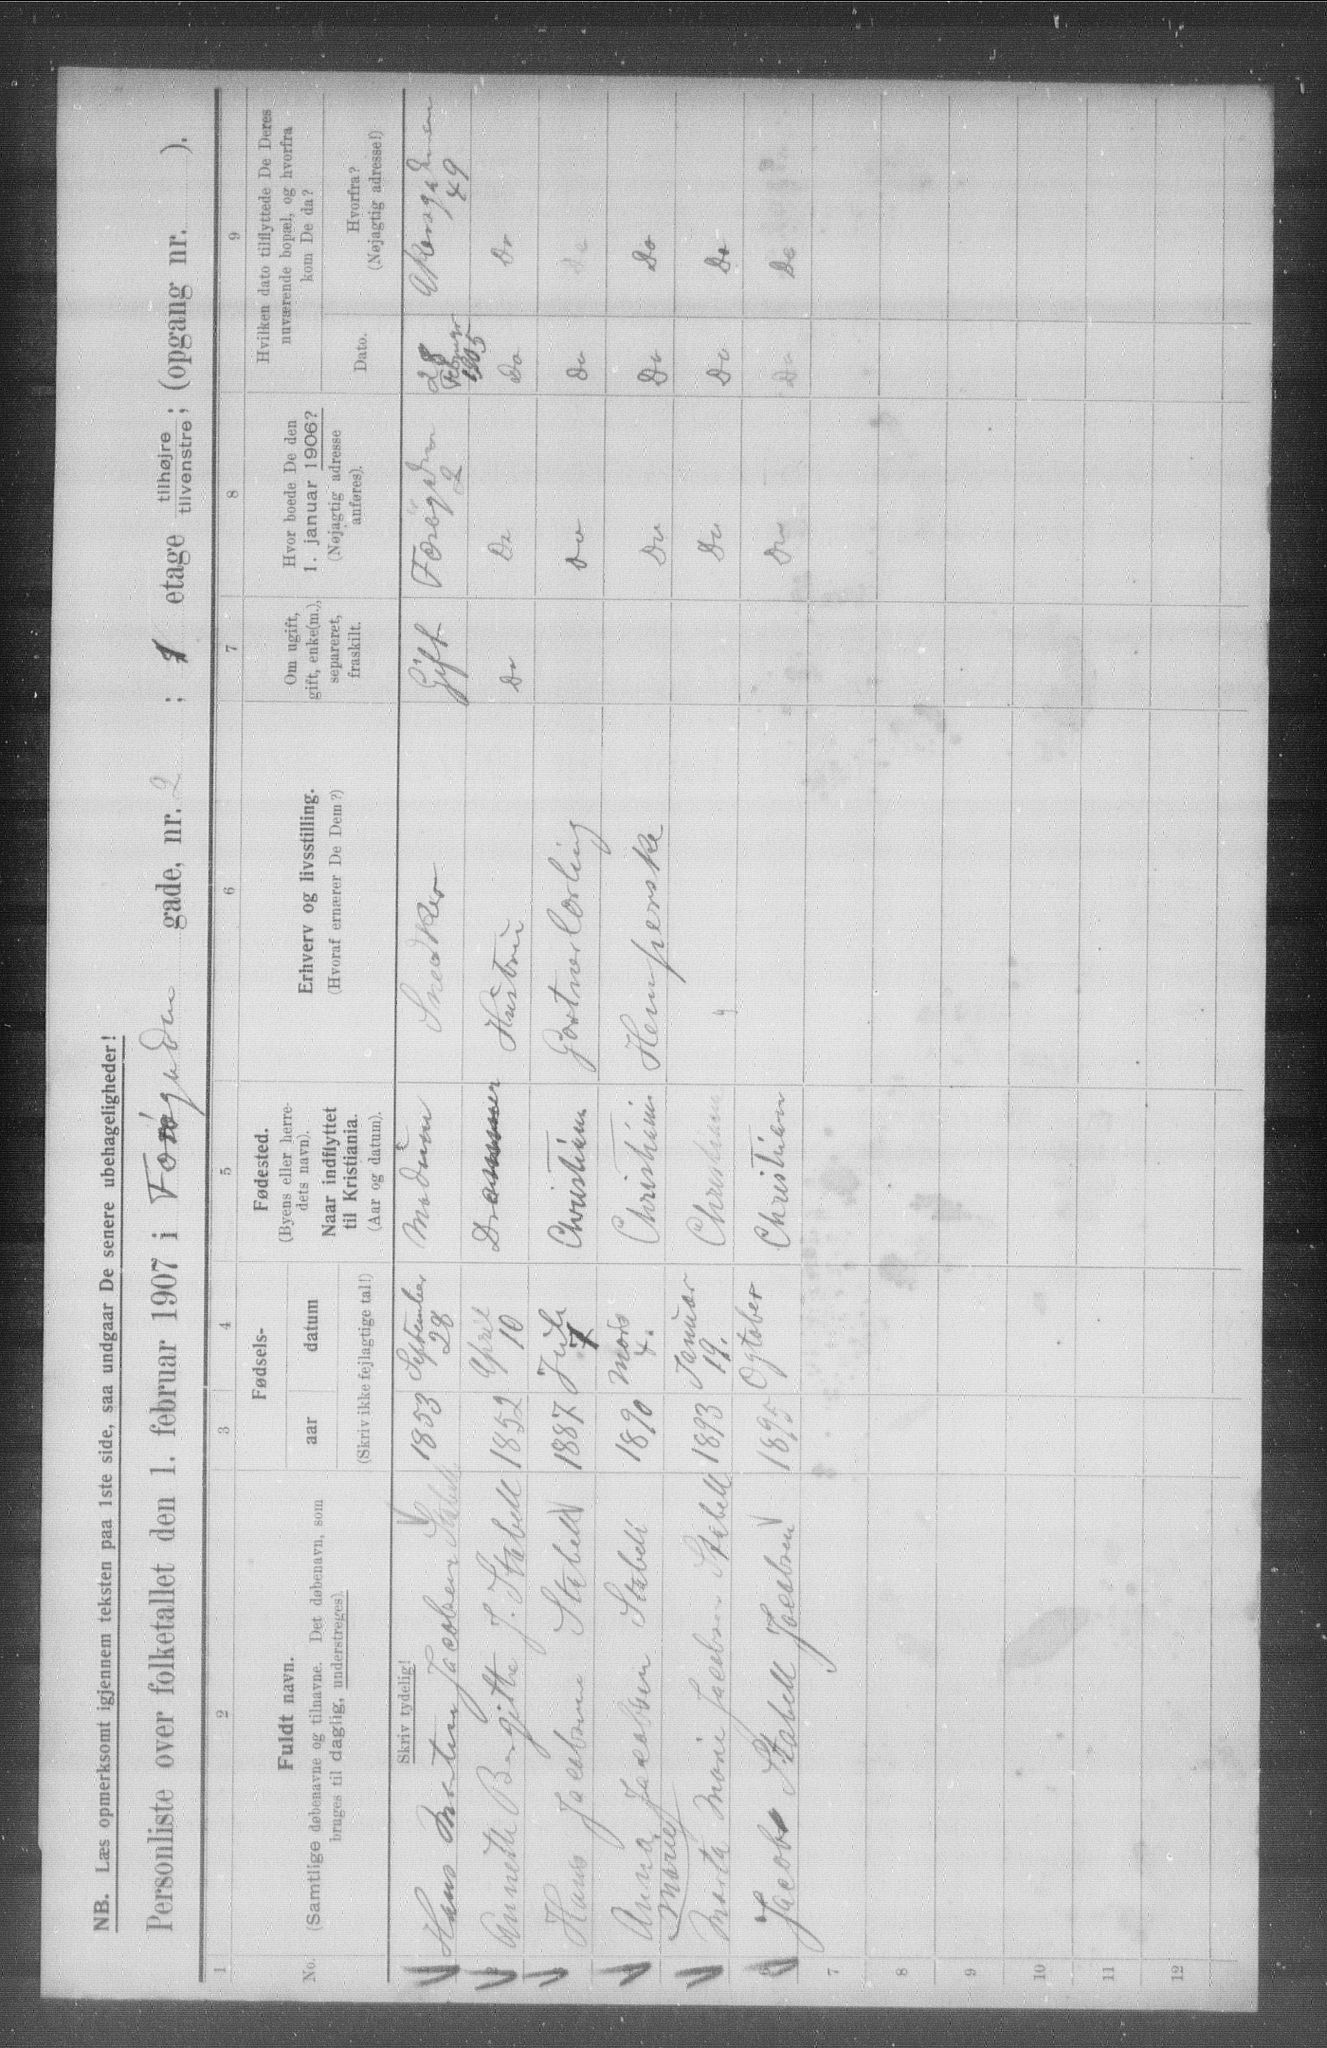 NB. Læs opmerksomt igjennem teksten paa 1ste side, saa undgaar De senere ubehageligheder!
Personliste over folketallet den 1. februar 1907 i gade, nr. 2 ; 1 etage tilhøjre tilvenstre; (opgang nr. ).
1 2 3 4 5 6 7 8 9
No.
Fuldt navn.
(Samtlige døbenavne og tilnavne. Det døbenavn, som
bruges til daglig, understreges).
Fødsels-
aar datum
(Skriv ikke fejlagtige tal!)
Fødested.
(Byens eller herre-
dets navn).
Naar indflyttet
til Kristiania.
(Aar og datum).
Erhverv og livsstilling.
(Hvoraf ernærer De Dem?)
Om ugift,
gift, enke(m.),
separeret,
fraskilt.
Hvor boede De den
1. januar 1906?
(Nøjagtig adresse
anføres).
Hvilken dato tilflyttede De Deres
nuværende bopæl, og hvorfra
kom De da?
Dato.
Hvorfra?
(Nøjagtig adresse!)
Skriv tydelig!
Hans Martin Jacobsen Stabell 1853 September 28 Modum Snedker Gift 2 28 Februar 1905 Akersgaden 49
Annette Bergitte J. Stabell 1852 April 10 Drammen Hustru Do Do Do Do
Hans Jacobsen Stabell 1887 Juli 7 Christiania Gartnerlærling Do Do Do
Anna Marie Jacobsen Stabell 1890 Mars 4. Christiania Do Do Do
Marta Marie Jacobsen Stabell 1893 Januar 19. Christiania Do Do Do
6 Jacob Stabell Jacobsen 1895 Ogtober Christian Do Do Do
7
8
9
10
11
12